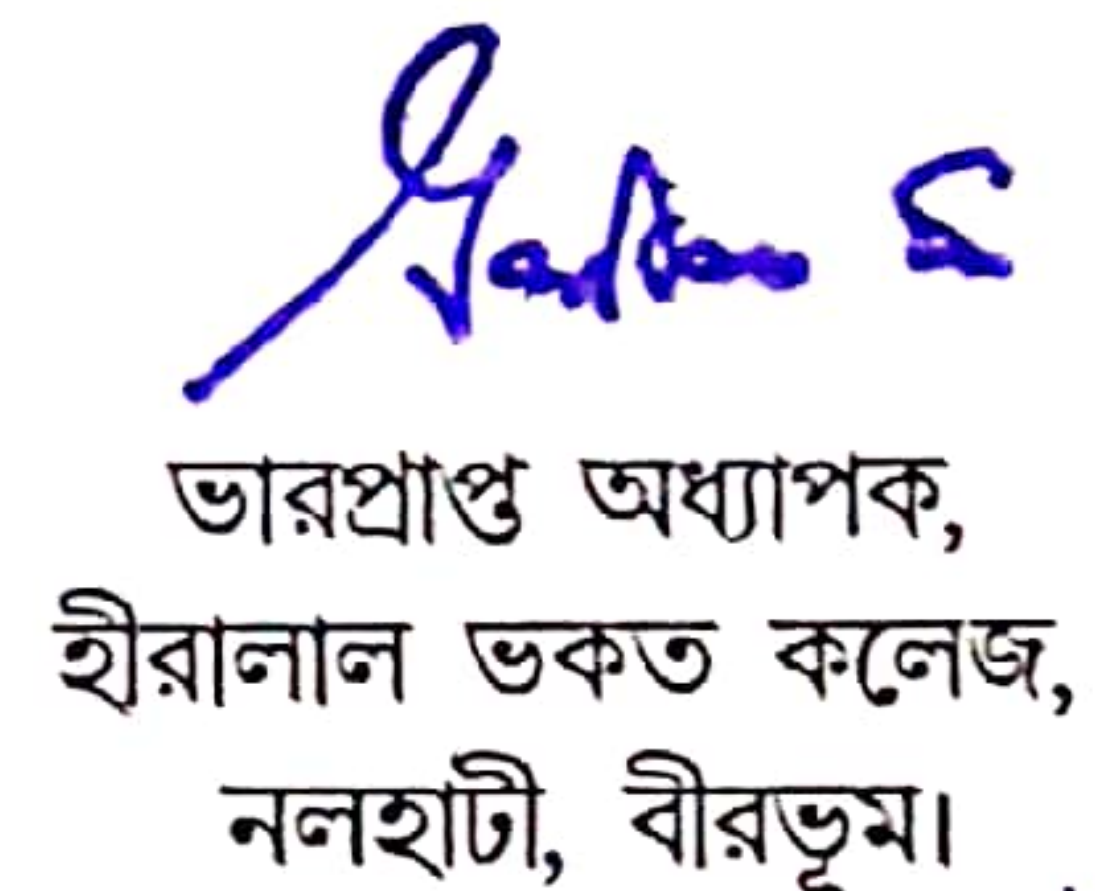 ভারপ্রাপ্ত অধ্যাপক,
হীরালাল ভকত কলেজ,
নলহাটী, বীরভূম।